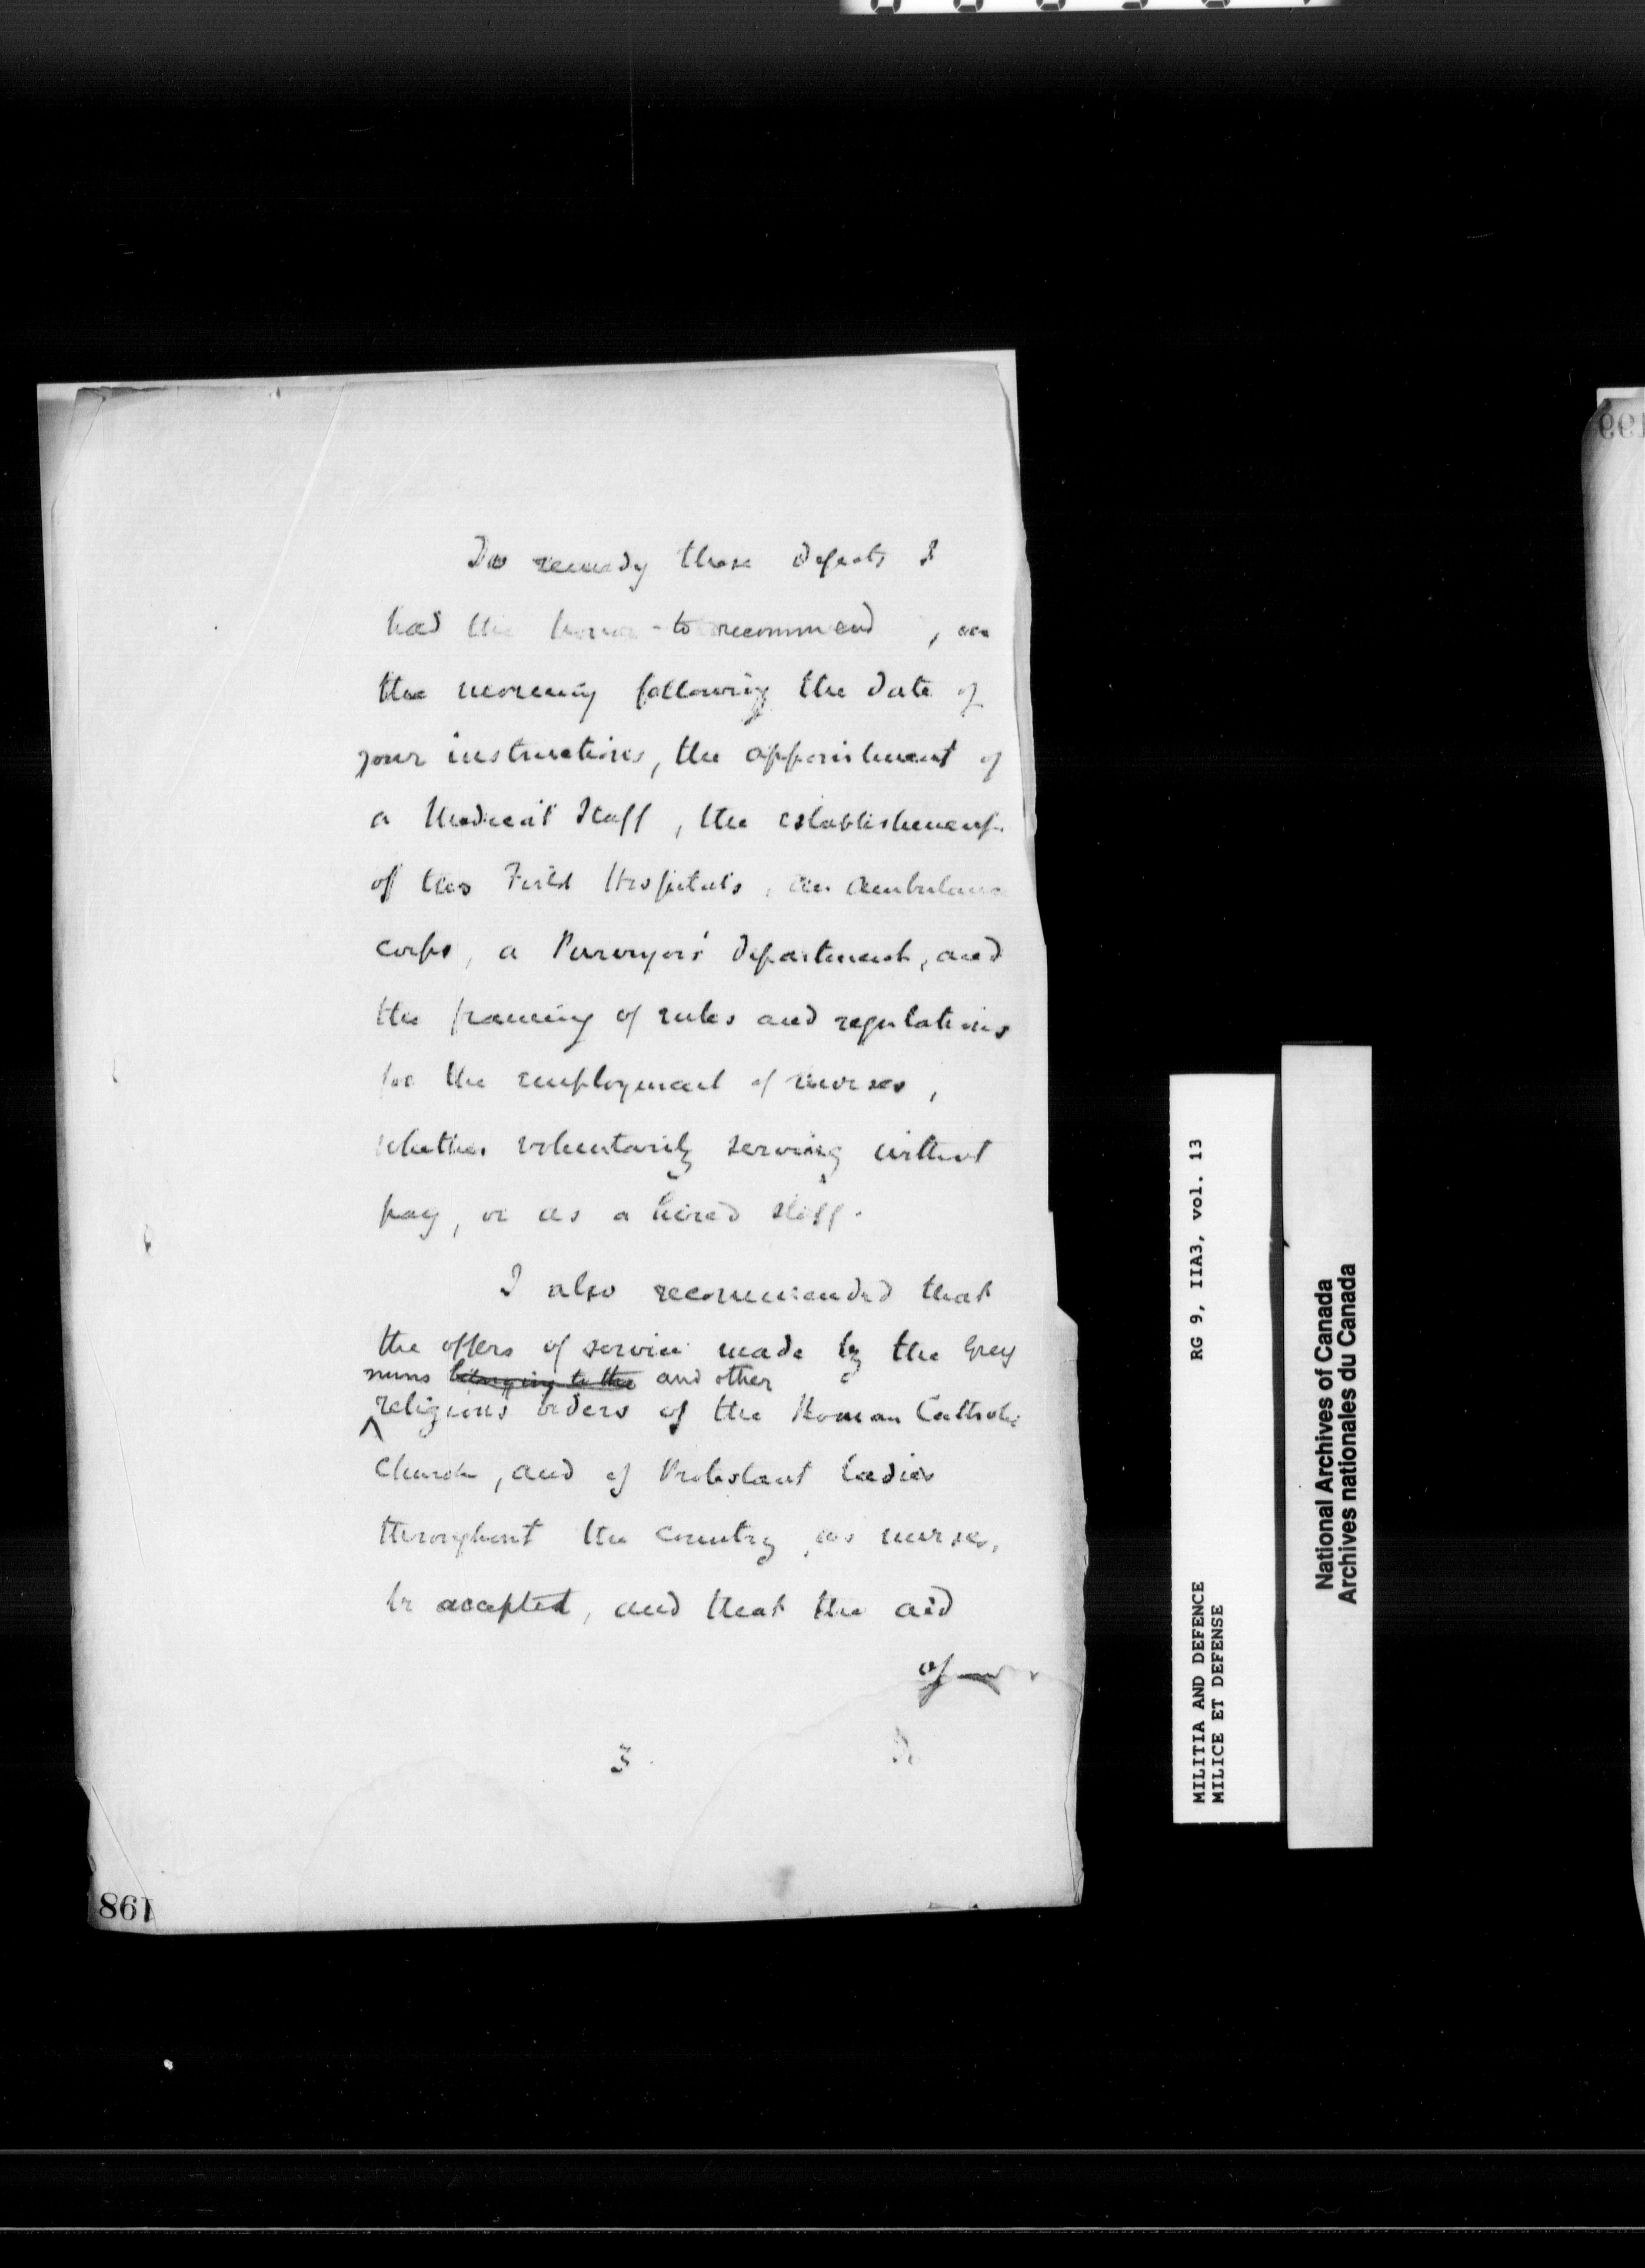 To remedy these defects I
had the honor to recommend, on
the morning following the date of
your instructions, the appointment of
a Medical Staff, the establishment
of two Field Hospitals, an Ambulance
corps, a Purveyor's department, and
the framing of rules and regulations
for the employment of nurses,
whether voluntarily serving without
pay, or as a hired staff.
I also recommended that
the offers of service made by the Grey
nuns belonging to the and other
religious orders of the Roman Catholic
Church, and of Protestant ladies
throughout the country, as nurses,
be accepted, and that the aid
of
3
198
199
MILITIA AND DEFENCE RG 9, IIA3, vol. 13
MILICE ET DEFENSE
National Archives of Canada
Archives nationales du Canada